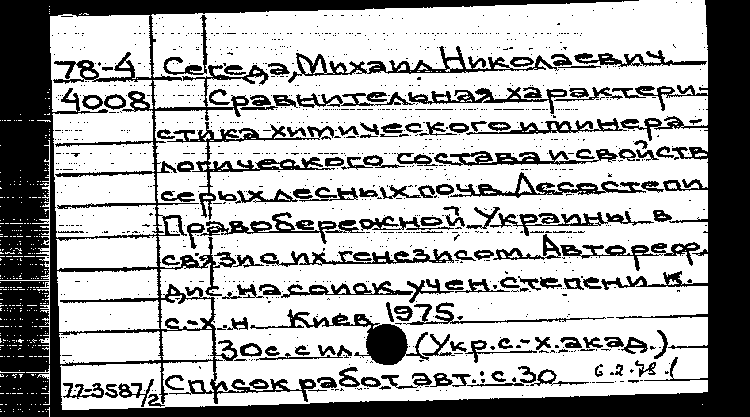 78-4 Сегеда, Михаил Николаевич.
4008 Сравнительная характери-
стика химического и минера-
логического состава и свойств
серых лесных почв Лесостепи
Правобережной Украины в
связи с их генезисом. Автореф.
дис. на соиск. учен. степени к.
с.-х. н. Киев, 1975.
30 с. с ил. (Укр. с.-х. акад.).
77-3587/2 Список работ авт.: с. 30.